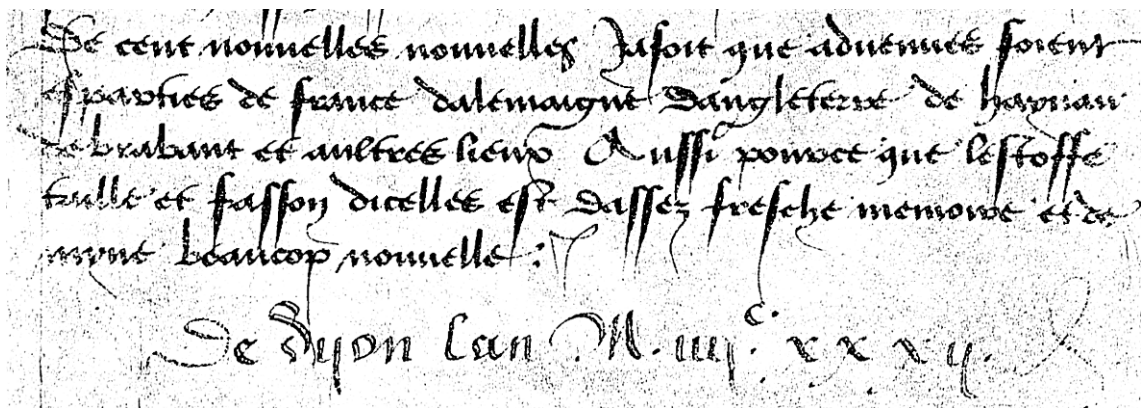 De cent nouuelles nouuelles Jasoit que aduenues soient
es parties de france dalemaigne dangleterre de haynau
de brabant et aultres lieux Aussi pource que lestoffe
taille et fasson dicelles est dassez fresche memoire et de
myne beaucop nouuelle :
De dijon lan M. iiijc. xxxij.